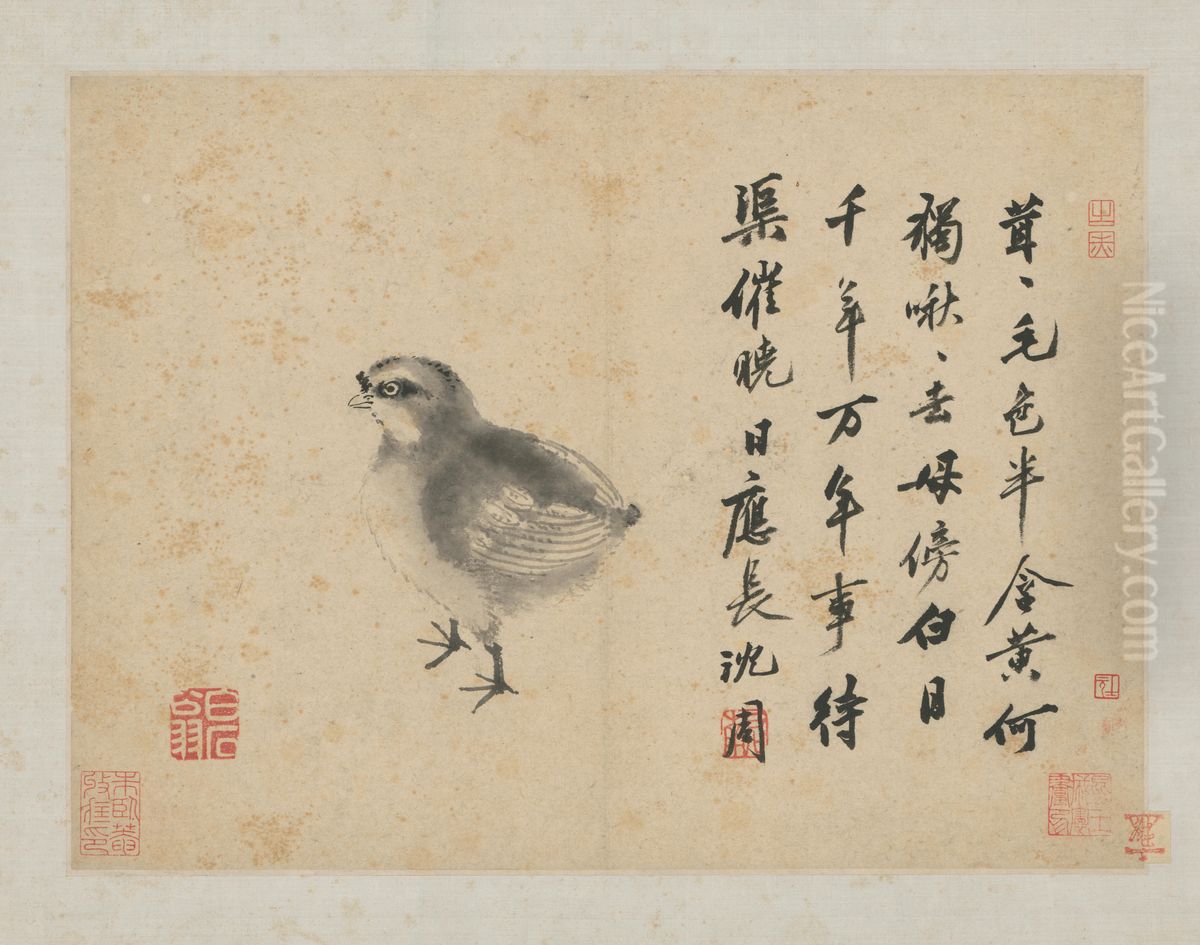 茸、毛色半含黄何
獨啾、去母傍白日
千年万年事待
渠催曉日應長沈周
白石翁
朱臥菴收藏印
NiceArtGallery.com